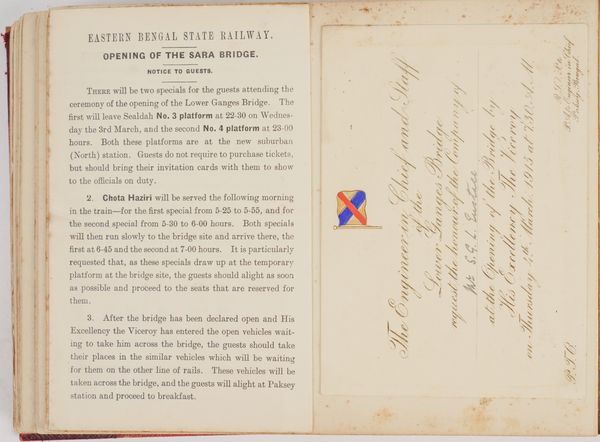 EASTERN BENGAL STATE RAILWAY.
OPENING OF THE SARA BRIDGE.
NOTICE TO GUESTS.
THERE will be two specials for the guests attending the
ceremony of the opening of the Lower Ganges Bridge. The
first will leave Sealdah No. 3 platform at 22-30 on Wednes-
day the 3rd March, and the second No. 4 platform at 23-00
hours. Both these platforms are at the new suburban
(North) station. Guests do not require to purchase tickets,
but should bring their invitation cards with them to show
to the officials on duty.
2. Chota Haziri will be served the following morning
in the train—for the first special from 5-25 to 5-55, and for
the second special from 5-30 to 6-00 hours. Both specials
will then run slowly to the bridge site and arrive there, the
first at 6-45 and the second at 7-00 hours. It is particularly
requested that, as these specials draw up at the temporary
platform at the bridge site, the guests should alight as soon
as possible and proceed to the seats that are reserved for
them.
3. After the bridge has been declared open and His
Excellency the Viceroy has entered the open vehicles wait-
ing to take him across the bridge, the guests should take
their places in the similar vehicles which will be waiting
for them on the other line of rails. These vehicles will be
taken across the bridge, and the guests will alight at Paksey
station and proceed to breakfast.
The Engineer in Chief and Staff
of the
Lower Ganges Bridge
request the honour of the Company of
Mr S. G. L. Eustace
at the Opening of the Bridge by
His Excellency The Viceroy
on Thursday 4th. March 1915 at 7.30 A.M.
R.S.V.P. to
Engineer in Chief
Paksey, Bengal
P.T.O.